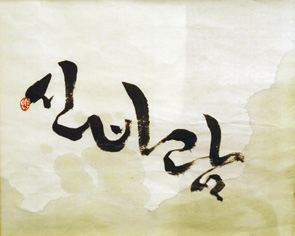 신바람